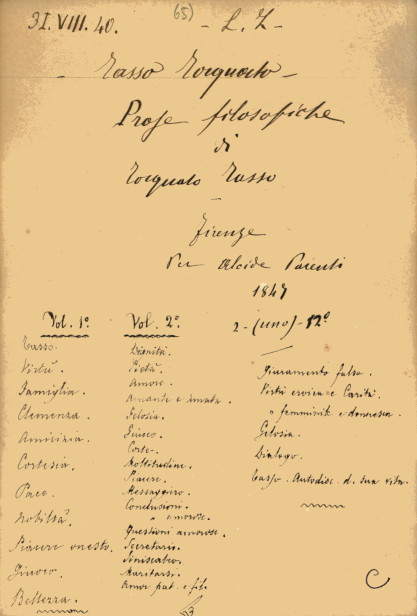 31.VIII.40. (65) - L. Z -
- Tasso Torquato -
Prose filosofiche
di
Torquato Tasso
-
Firenze
Per Alcide Parenti
1847
2 - (uno) - 12º
Vol. 1º.
Tasso.
Virtù.
Famiglia.
Clemenza.
Amicizia.
Cortesia.
Pace.
Nobiltà.
Piacere onesto.
Giuoco.
Bellezza.
Vol. 2º.
Dignità.
Pietà.
Amore.
Amante e amata.
Gelosia.
Giuoco.
Corte.
Moltitudine.
Piacere.
Messaggiero.
Conclusioni.
" amorose.
Questioni amorose.
Secretario.
Maritarsi.
Amor pat. e fil.
Giuramento falso.
Virtù eroica e Carità.
" femminile e donnesca.
Gelosia.
Dialogo.
Tasso. Autodisc. d. sua vita.
C